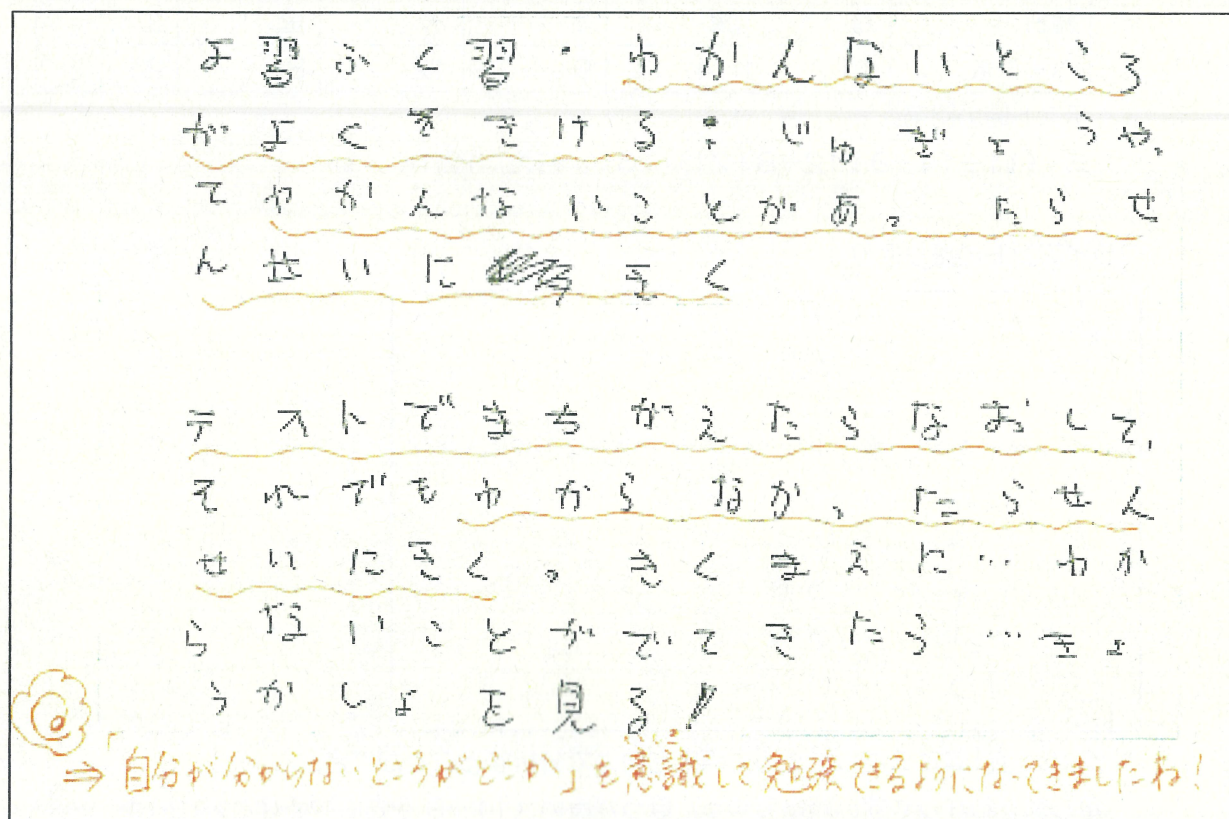 よ習ふく習・わかんないところ
がよくでてきける:じゅぎょうや。
てわかんないことがあったらせ
んせいにきく
テストでまちがえたらなおして、
それでもわからなかったらせん
せいにきく。きくまえに…わか
らないことがでてきたら…きょ
うかしょを見る!
⇒「自分が分からないところがどこか」を意識して勉強できるようになってきましたね!